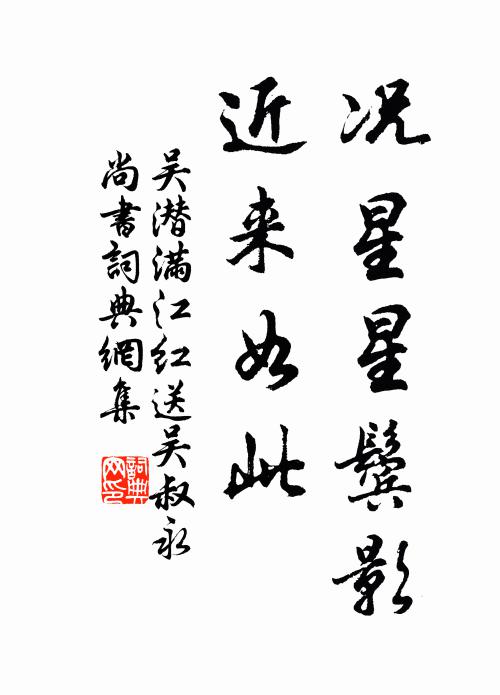 况星星鬓影
近来如此
吴潜满江红送吴叔永
尚書詞典網集
詞典
网印